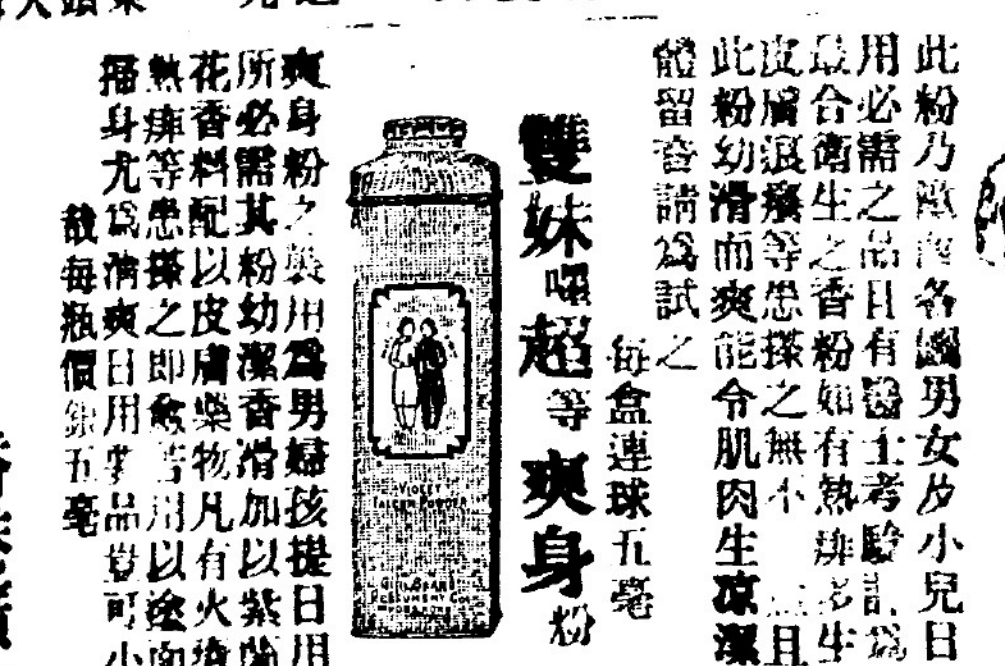 此粉乃歐西各國男女及小兒日
用必需之品且有醫士考驗訂為
最合衛生之香粉如有熱痱多生
皮膚痕癢等患搽之無不 且
此粉幼滑而爽能令肌肉生涼潔
體留香請為試之
每盒連球五毫
雙妹嚜超等爽身粉
VIOLET
TALCUM POWDER
爽身粉之製用為男婦孩提日用
所必需其粉幼潔香滑加以紫蘭
花香料配以皮膚藥物凡有火
熱痱等患搽之即愈若用以塗面
搽身尤為清爽日用要品豈可小
每瓶價銀五毫